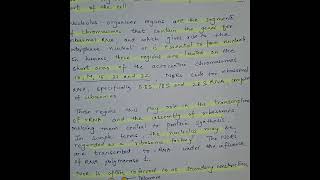 of the cell
Nucleolus organiser regions are the segments
of chromosomes that contain the genes for
ribosomal RNA and which gives rise to the
interphase nucleoli or is essential to form nucleoli
In humans, these regions are located on the
short arms of the acrocentric chromosomes
13, 14, 15, 21 and 22. NORs code for ribosomal
RNA, specifically 5.8S, 18S and 28S rRNA
of ribosomes
These regions thus play role in the transcription
of rRNA and the assembly of ribosomes
making them central to protein synthesis
In simple terms, the nucleolus may be
regarded as a ribosome factory. The NORs
are transcribed to RNA under the influence
of RNA polymerase I.
NOR is often referred to as secondary constriction
Telomere